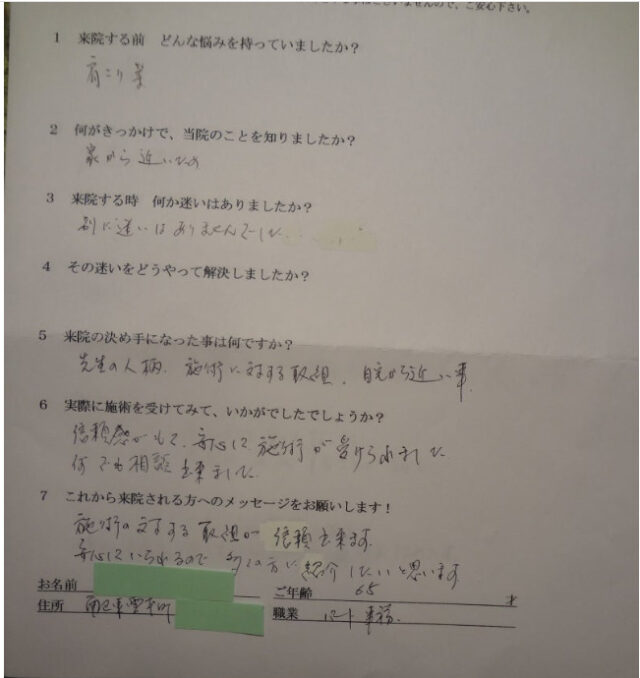 ございませんので、ご安心下さい。
1 来院する前 どんな悩みを持っていましたか？
肩こり等
2 何がきっかけで、当院のことを知りましたか？
家から近いため
3 来院する時 何か迷いはありましたか？
別に迷いはありませんでした。
4 その迷いをどうやって解決しましたか？
5 来院の決め手になった事は何ですか？
先生の人柄、施術に対する取組、自宅から近い事
6 実際に施術を受けてみて、いかがでしたでしょうか？
信頼感がもて、安心して施術が受けられました
何でも相談出来ました
7 これから来院される方へのメッセージをお願いします！
施術の対する取組が信頼出来ます
安心していられるので多くの方に紹介したいと思います
お名前 ご年齢 65 才
住所 職業 パート事務